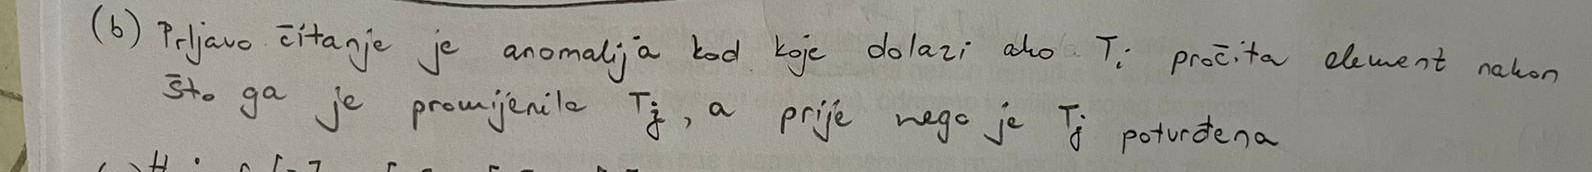 (b) Prljavo čitanje je anomalija kod koje dolazi ako Ti pročita element nakon
što ga je promijenila Tj, a prije nego je Tj potvrđena